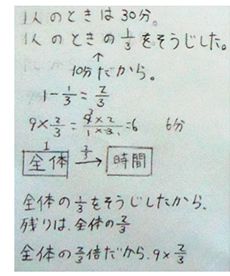 1人のときは30分。
1人のときの1/3をそうじした。
↑
10分だから。
1-1/3=2/3
9×2/3=9×2/1×3=6 6分
1 2/3
全体 → 時間
全体の1/3をそうじしたから、
残りは、全体の2/3
全体の2/3倍だから、9×2/3